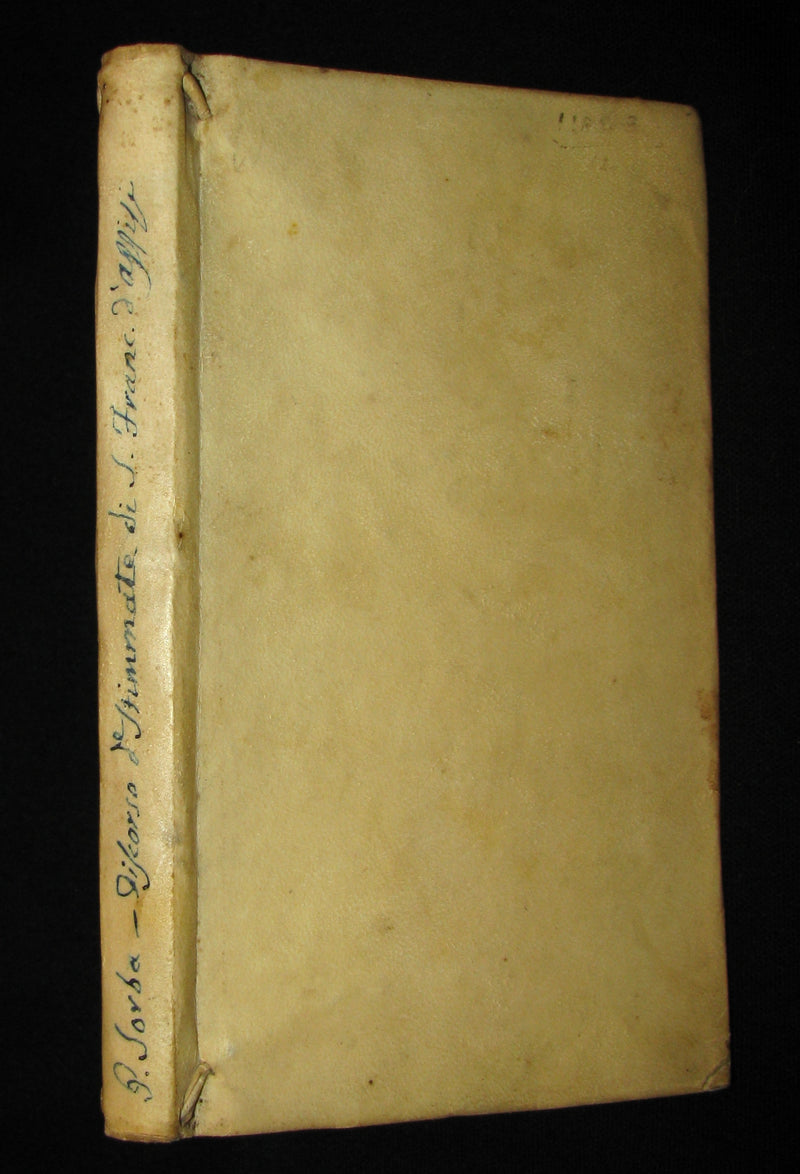 P. Sorba — Discorso d Stimmate di S. Franc. d'Assisi